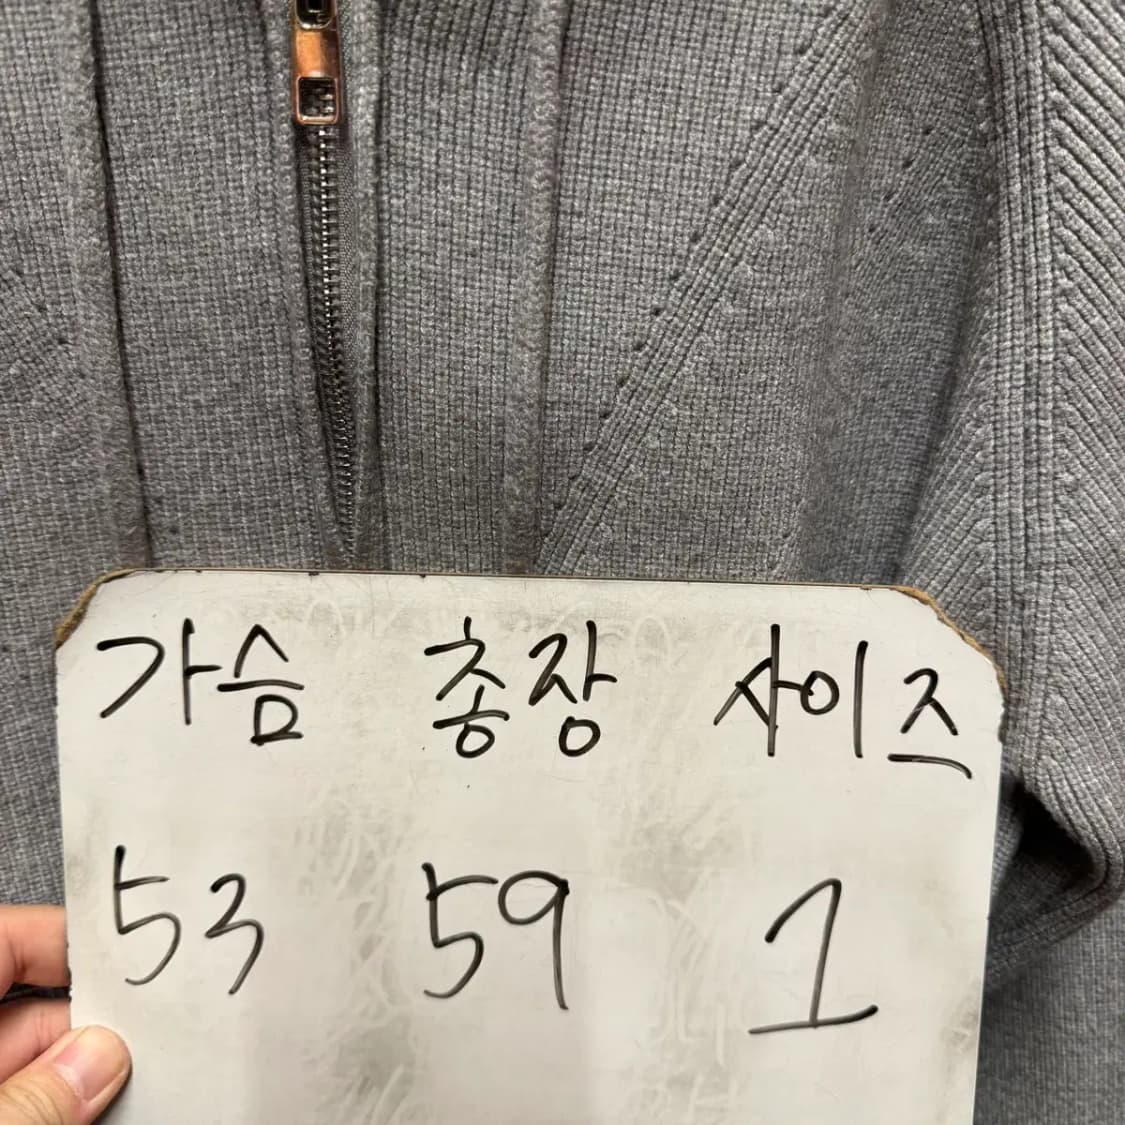 가슴 총장 사이즈
53 59 1